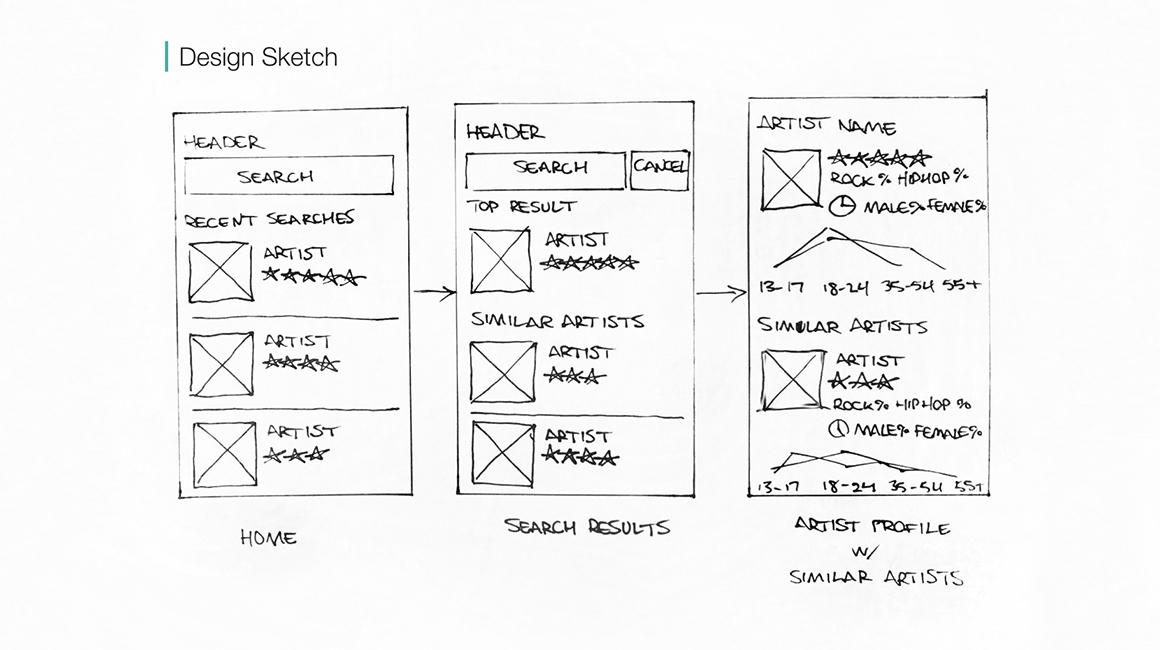 Design Sketch
HEADER
SEARCH
RECENT SEARCHES
ARTIST
ARTIST
ARTIST
HOME
HEADER
SEARCH
CANCEL
TOP RESULT
ARTIST
SIMILAR ARTISTS
ARTIST
ARTIST
SEARCH RESULTS
ARTIST NAME
ROCK % HIPHOP %
MALE% FEMALE%
13-17 18-24 35-54 55+
SIMILAR ARTISTS
ARTIST
ROCK% HIPHOP %
MALE% FEMALE%
13-17 18-24 35-54 55+
ARTIST PROFILE
W/
SIMILAR ARTISTS